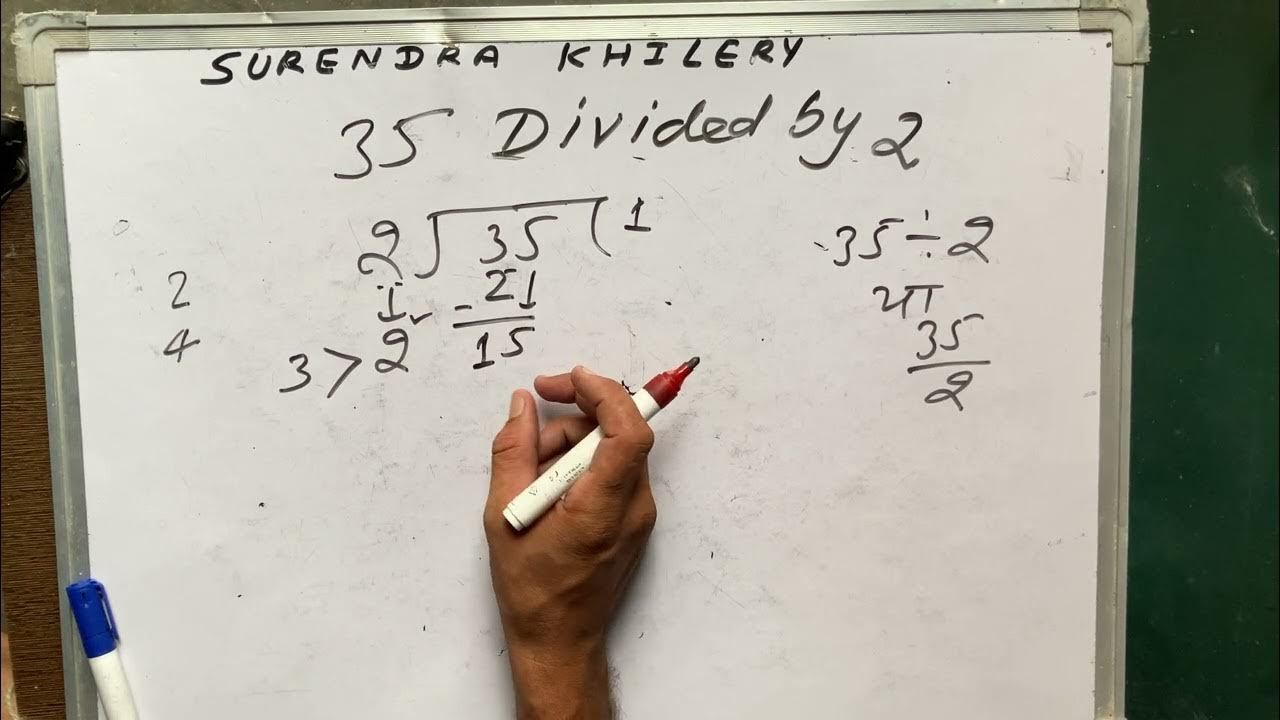 SURENDRA KHILERY
35 Divided by 2
2 35 ( 1
35 ÷ 2
2
1
- 21
या
4
3 > 2
15
35
2